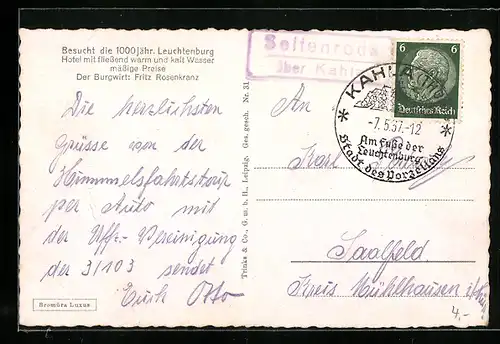 Besucht die 1000jähr. Leuchtenburg
Hotel mit fließend warm und kalt Wasser
mäßige Preise
Der Burgwirt: Fritz Rosenkranz
Die herzlichsten
Grüsse von der
Himmelsfahrtstour
per Auto mit
der Uffz.-Vereinigung
der 3/103 sendet
Euch Otto
Bromüra Luxus
Trinks & Co., G. m. b. H., Leipzig. Ges. gesch. Nr. 31
Seitenroda
über Kahla
6 6
Deutsches Reich
KAHLA
-7.5.37.-12
Am Fuße der
Leuchtenburg
Stadt des Porzellans
An
Karl
Saalfeld
Kreis Mühlhausen i/Thür
4.-